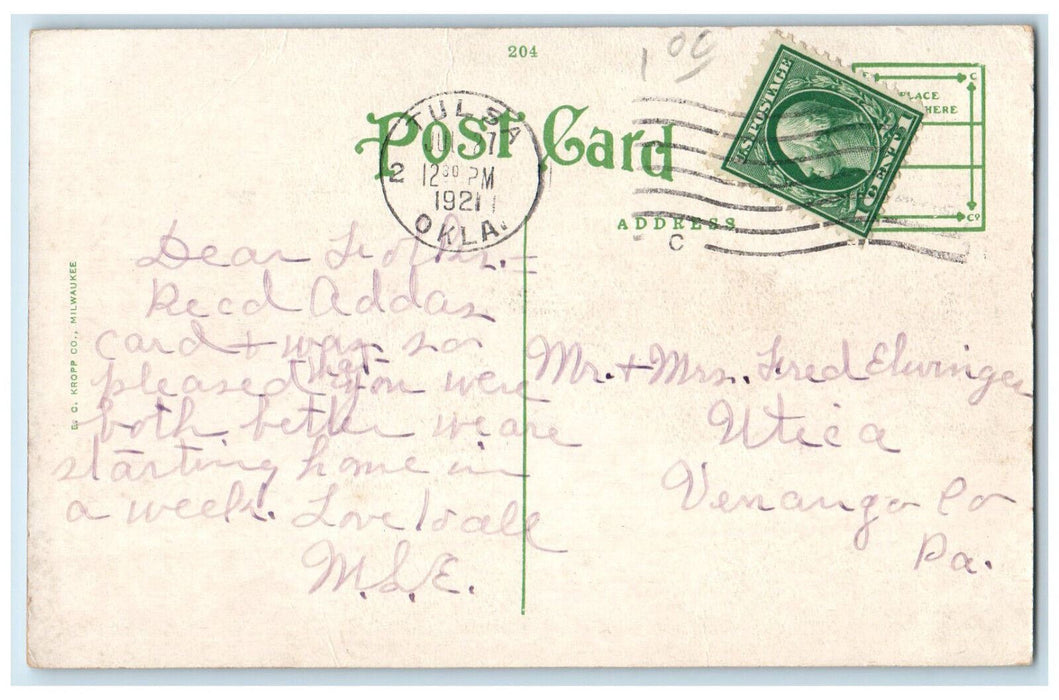 204
1 00
POST CARD
TULSA
27
12 30 PM
2
1921
OKLA.
U.S. POSTAGE
1 CENT 1
PLACE
HERE
C
Co
ADDRESS
C
Dear Folks.=
Recd Addas
card + was so
pleased that you were
both better we are
starting home in
a week. Love to all
M.L.E.
Mr. + Mrs. Fred Elwinger
Utica
Venango Co
Pa.
E. C. KROPP CO., MILWAUKEE